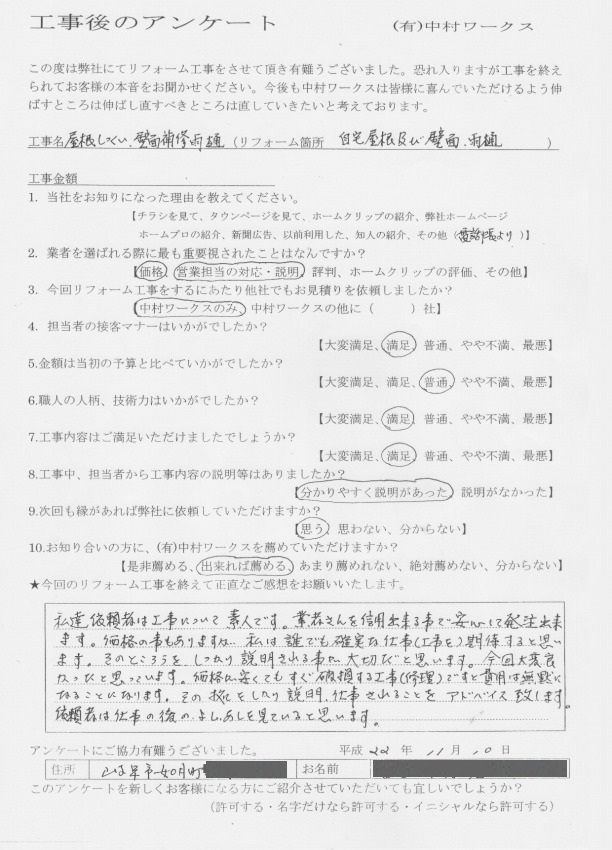 工事後のアンケート (有)中村ワークス
この度は弊社にてリフォーム工事をさせて頂き有難うございました。恐れ入りますが工事を終え
られてお客様の本音をお聞かせください。今後も中村ワークスは皆様に喜んでいただけるよう伸
ばすところは伸ばし直すべきところは直していきたいと考えております。
工事名 屋根しっくい、壁面補修、雨樋 (リフォーム箇所 自宅屋根及び壁面、雨樋 )
工事金額
1. 当社をお知りになった理由を教えてください。
【チラシを見て、タウンページを見て、ホームクリップの紹介、弊社ホームページ
ホームプロの紹介、新聞広告、以前利用した、知人の紹介、その他( より)】
2. 業者を選ばれる際に最も重要視されたことはなんですか?
【価格、営業担当の対応・説明、評判、ホームクリップの評価、その他】
3. 今回リフォーム工事をするにあたり他社でもお見積りを依頼しましたか?
【中村ワークスのみ、中村ワークスの他に( )社】
4. 担当者の接客マナーはいかがでしたか?
【大変満足、満足、普通、やや不満、最悪】
5.金額は当初の予算と比べていかがでしたか?
【大変満足、満足、普通、やや不満、最悪】
6.職人の人柄、技術力はいかがでしたか?
【大変満足、満足、普通、やや不満、最悪】
7.工事内容はご満足いただけましたでしょうか?
【大変満足、満足、普通、やや不満、最悪】
8.工事中、担当者から工事内容の説明等はありましたか?
【分かりやすく説明があった、説明がなかった】
9.次回も縁があれば弊社に依頼していただけますか?
【思う、思わない、分からない】
10.お知り合いの方に、(有)中村ワークスを薦めていただけますか?
【是非薦める、出来れば薦める、あまり薦めれない、絶対薦めない、分からない】
★今回のリフォーム工事を終えて正直なご感想をお願いいたします。
私達依頼者は工事について素人です。業者さんを信用出来る事で安心して発注出来
ます。価格の事もありますが、私は誰でも確実な仕事(工事を)期待すると思い
ます。そのところを しっかり説明される事が大切だと思います。今回大変良
かったと思っています。価格が安くてもすぐ破損する工事(修理)ですと費用は無駄に
なることになります。その をしたり説明、仕事されることを アドバイス致します。
依頼者は仕事の後の、よし、あしを見ていると思います。
アンケートにご協力有難うございました。 平成 22 年 11 月 10 日
住所 山県市 お名前
このアンケートを新しくお客様になる方にご紹介させていただいても宜しいでしょうか?
(許可する・名字だけなら許可する・イニシャルなら許可する)